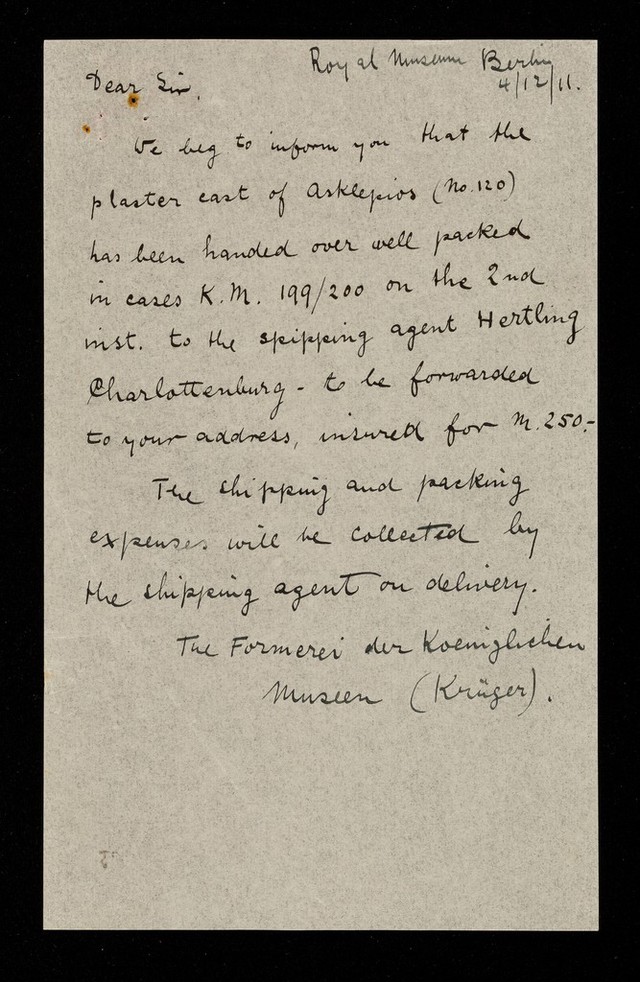 Royal Museum Berlin
4/12/11.
Dear Sir,
We beg to inform you that the
plaster cast of Asklepios (No. 120)
has been handed over well packed
in cases K.M. 199/200 on the 2nd
inst. to the spipping agent Hertling
Charlottenburg - to be forwarded
to your address, insured for M. 250.-
The shipping and packing
expenses will be collected by
the shipping agent on delivery.
The Formerei der Koeniglichen
Museen (Krüger).